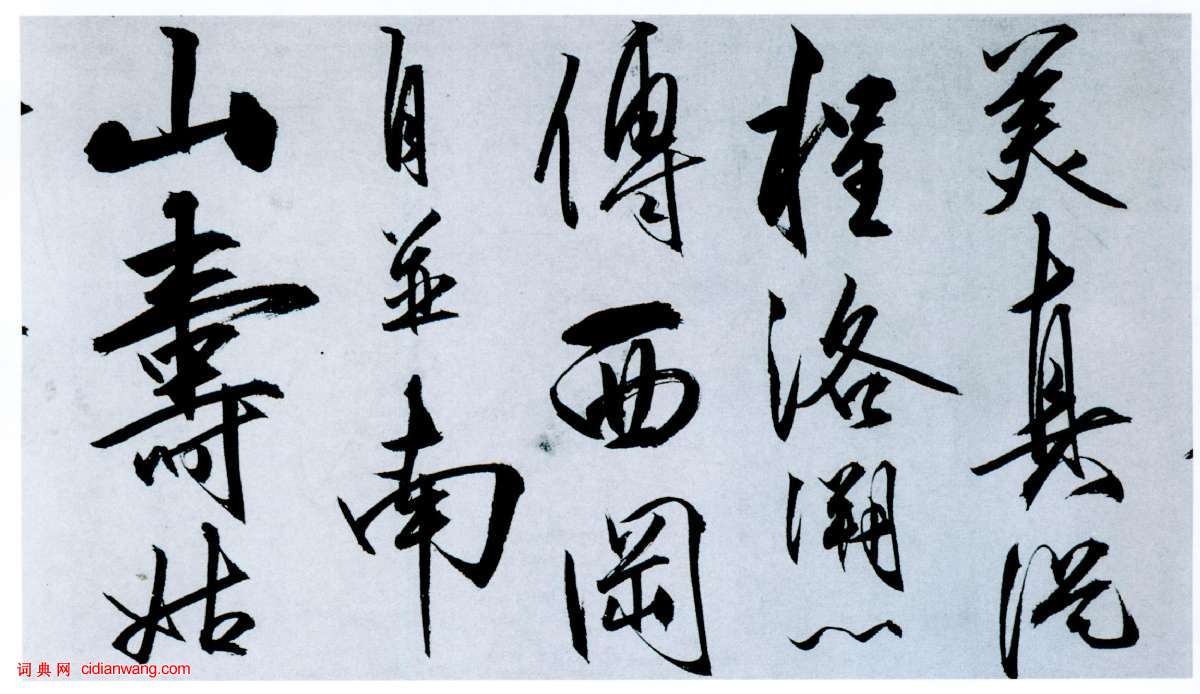 美真從
程洛溯心
傳西岡
自並南
山壽姑
词典网 cidianwang.com